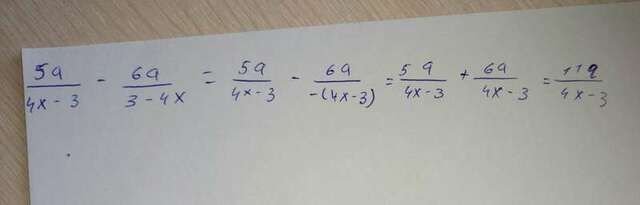 5a/(4x-3) - 6a/(3-4x) = 5a/(4x-3) - 6a/(-(4x-3)) = 5a/(4x-3) + 6a/(4x-3) = 11a/(4x-3)